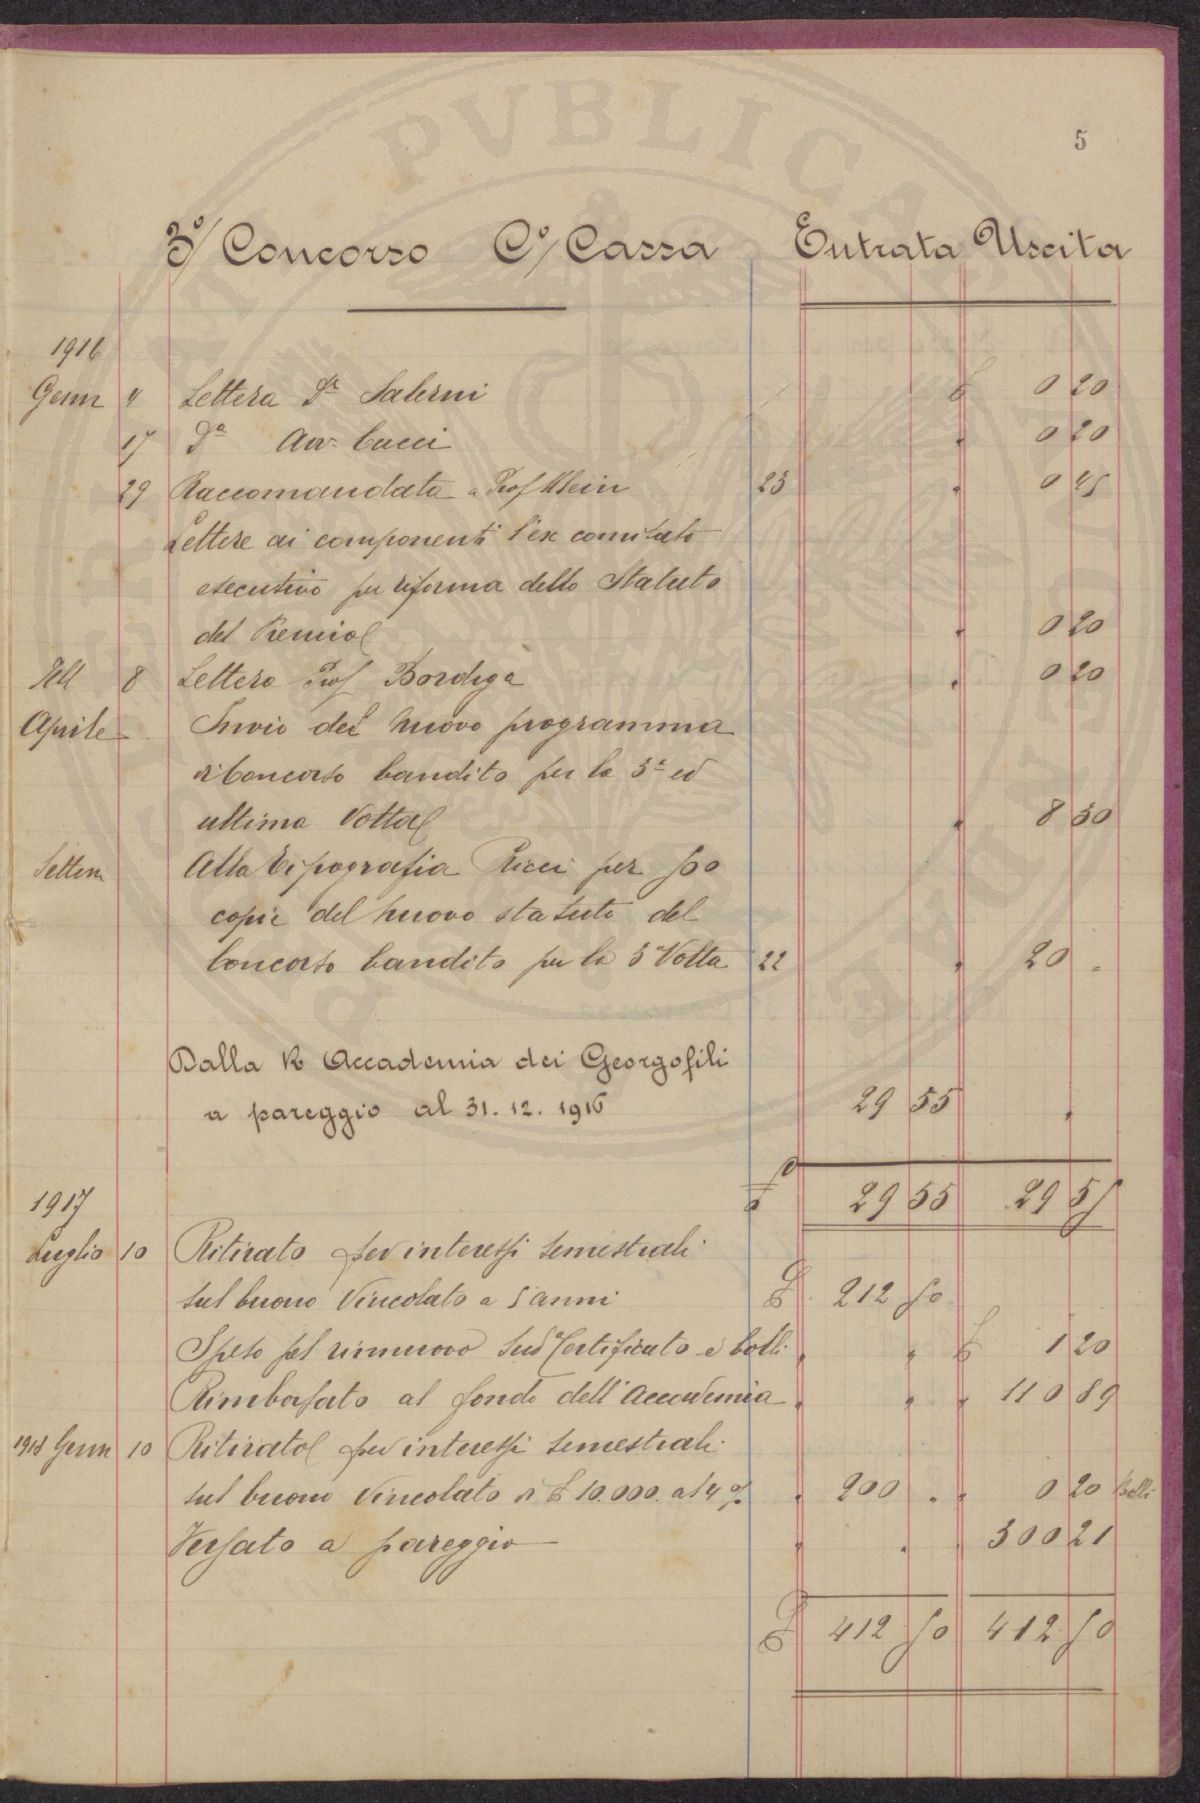 PVBLICA
5
3º/ Concorso Cº/ Cassa Entrata Uscita
1916
Genn 4 Lettera Dr Salerni £ 0 20
17 Da Avv. Cucci " 0 20
29 Raccomandata a Prof Klein 23 " 0 45
Lettere ai componenti l'ex comitato
esecutivo per riforma dello Statuto
del Premio " 0 20
8 Lettera Prof Bordiga " 0 20
Aprile Invio del nuovo programma
di Concorso bandito per la 3a ed
ultima Volta " 8 30
Settem Alla Tipografia Ricci per 500
copie del nuovo statuto del
Concorso bandito per la 3a Volta 22 " 20 -
Dalla R Accademia dei Georgofili
a pareggio al 31.12.1916 29 55 "
£ 29 55 29 55
1917
Luglio 10 Ritirato per interessi semestrali
sul buono Vincolato a 5 anni £ 212 50
Speso pel rinnuovo sud Certificato e bolli " " £ 1 20
Rimborsato al fondo dell'Accademia " " " 110 89
1918 Genn 10 Ritirato per interessi semestrali
sul buono Vincolato di £ 10.000. al 4 % " 200 " " 0 20 bolli
Versato a pareggio " " " 300 21
£ 412 50 412 50